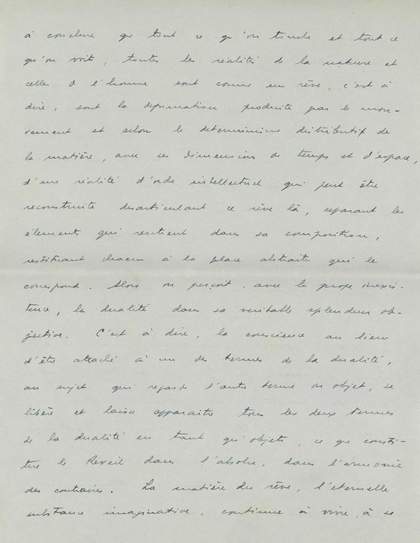 à conclure que tout ce qu'on touche et tout ce
qu'on voit, toutes les réalités de la nature et
celles de l'homme sont comme un rêve, c'est à
dire, sont la déformation produite par le mou-
vement et selon le déterminisme distributif de
la matière, avec ses dimensions de temps et d'espace,
d'une réalité d'ordre intellectuel qui peut être
reconstruite désarticulant ce rêve là, séparant les
éléments qui rentrent dans sa composition,
restituant chacun à la place abstraite qui le
correspond. Alors on perçoit, avec la propre inexis-
tence, la dualité dans sa véritable splendeur ob-
jective. C'est à dire, la conscience au lieu
d'être attachée à un des termes de la dualité,
au sujet qui regarde l'autre terme ou objet, se
libère et laisse apparaître tous les deux termes
de la dualité en tant qu'objets, ce que consti-
tue le Réveil dans l'absolu, dans l'armonie
des contraires. La matière du rêve, l'éternelle
substance imaginative, continue à vivre, à se